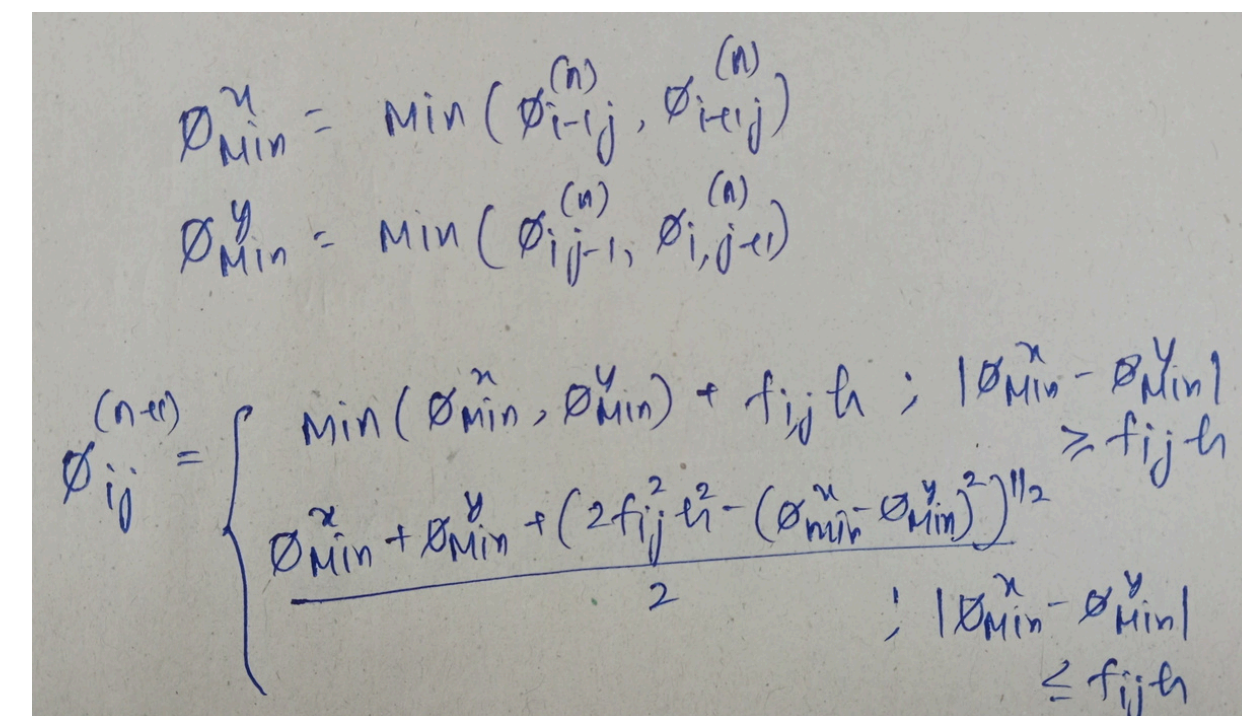 Ø^x_Min = Min ( Ø^(n)_i-1j , Ø^(n)_i+1j )
Ø^y_Min = Min ( Ø^(n)_ij-1, Ø^(n)_i,j+1 )
Ø^(n+1)_ij = { Min ( Ø^x_Min , Ø^y_Min ) + f_i,j h ; |Ø^x_Min - Ø^y_Min|
≥ f_ij h
Ø^x_Min + Ø^y_Min + (2f^2_ij h^2 - (Ø^x_min - Ø^y_Min)^2)^1/2
2
; |Ø^x_Min - Ø^y_Min|
≤ f_ij h